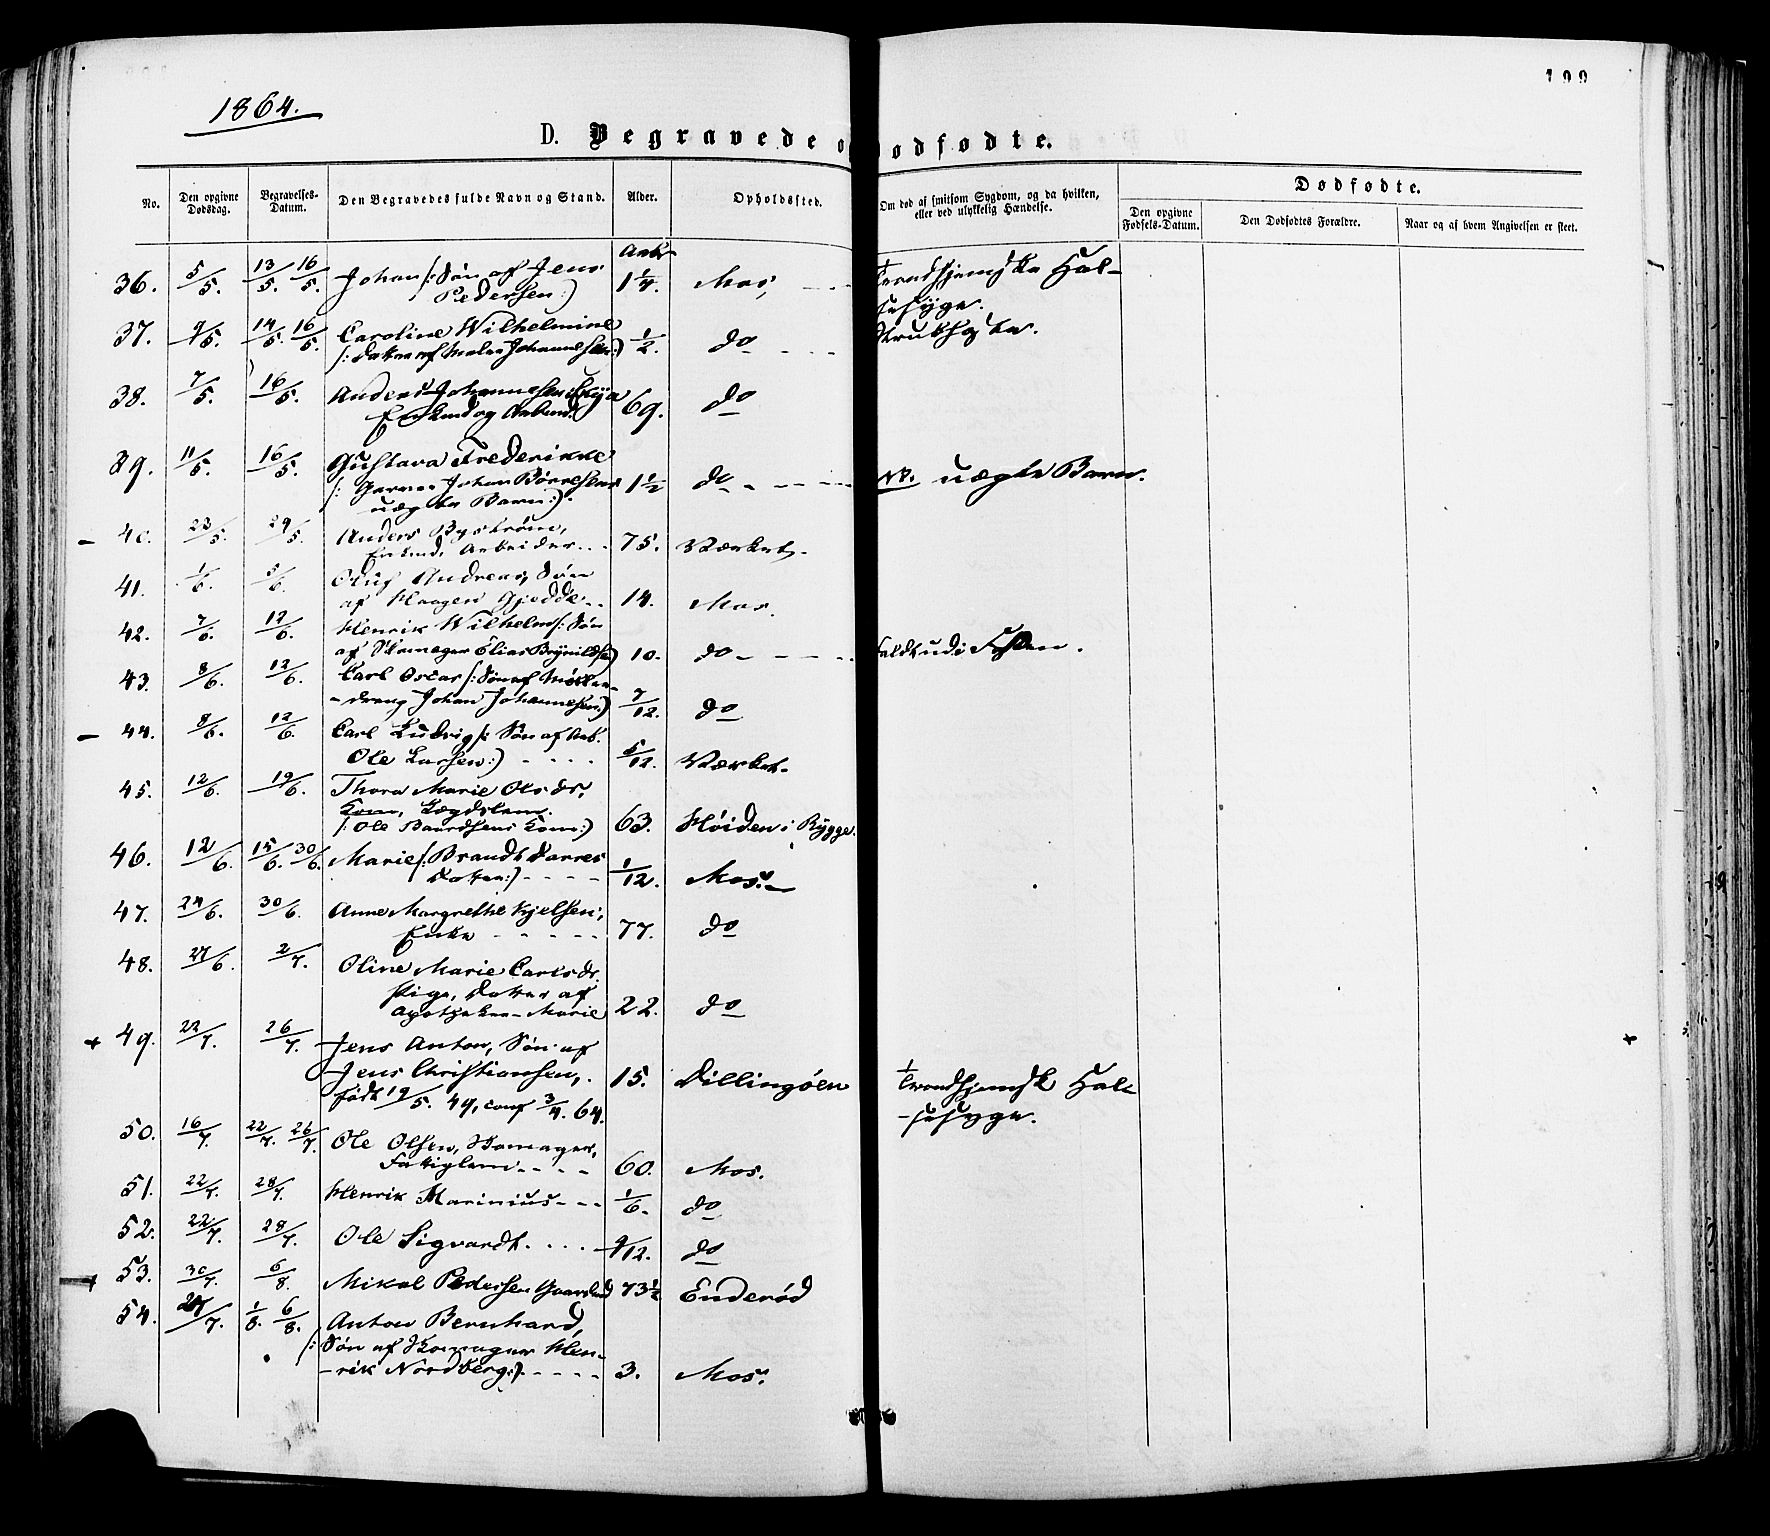 1864.
199
D. Begravede o
ødfødte.
No.
Den opgivne Dødsdag.
Begravelses-Datum.
Den Begravedes fulde Navn og Stand.
Alder.
Opholdssted.
Om død af smitsom Sygdom, og da hvilken, eller ved ulykkelig Hændelse.
Dødfødte.
Den opgivne Fødsels-Datum.
Den Dødfødtes Forældre.
Naar og af hvem Angivelsen er skeet.
36. 5/5. 13/5. 16/5. Johan /: Søn af Jens 1 1/4. Mos, Trondhjemske Hal-
Pedersen :) sesyge.
37. 9/5. 14/5. 16/5. Caroline Wilhelmine 1/2. do Strubehoste.
/: Datter af Maler Johannesen :)
38. 7/5. 16/5. Anders Johannesen 69. do
Enkemand og Arbmd.
39. 11/5. 16/5. Gustava Frederikke
/: Garver Johan Børresens 1 1/2 do NB. uægte Barn.
uægte Barn :).
- 40. 23/5. 29/5. Anders Byström,
Enkmd, Arbeider 75. Værket.
41. 1/6. 5/6. Oluf Andreas, Søn
af Haagen Gjedde 14. Mos.
42. 7/6. 12/6. Henrik Wilhelm /: Søn
af Skomager Elias Brynildsen) 10. do Faldt ud i Fossen.
43. 8/6. 12/6. Carl Oscar /: Søn af Møller-
-dreng Johan Johannesen :) 7/12. do
- 44. 8/6. 12/6. Carl Ludvig /: Søn af Arb.
Ole Larsen :) 5/12. Værket.
45. 12/6. 19/6. Thora Marie Olsdr,
Kone, Lægdslem.
/: Ole Baardsens Kone :) 63. Høiden i Rygge.
46. 12/6. 15/6. 30/6. Marie /: Brandt Darres
Datter :) 1/12. Mos.
47. 24/6. 30/6. Anne Margrethe Kjelsen,
Enke 77. do
48. 27/6. 2/7. Oline Marie Carlsdr.
Pige, Datter af
Apotheker-Marie 22. do
+ 49. 22/7. 26/7. Jens Anton, Søn af
Jens Christiansen, 15. Dillingøen Trondhjemsk Hal-
født 19/5. 49, conf 3/4. 64. -sesyge.
50. 16/7. 22/7. 26/7. Ole Olsen, Skomager,
Fattiglem 60. Mos.
51. 22/7. 28/7. Henrik Marinius 1/6. do
52. 22/7. 28/7. Ole Sigvardt 9/12. do
+ 53. 30/7. 6/8. Mikal Pedersen Gaardmd 73 1/2 Enderød
54. 27/7. 1/8. 6/8. Anton Bernhard,
/: Søn af Skomager Hen-
-rik Nordberg :) 3. Mos.